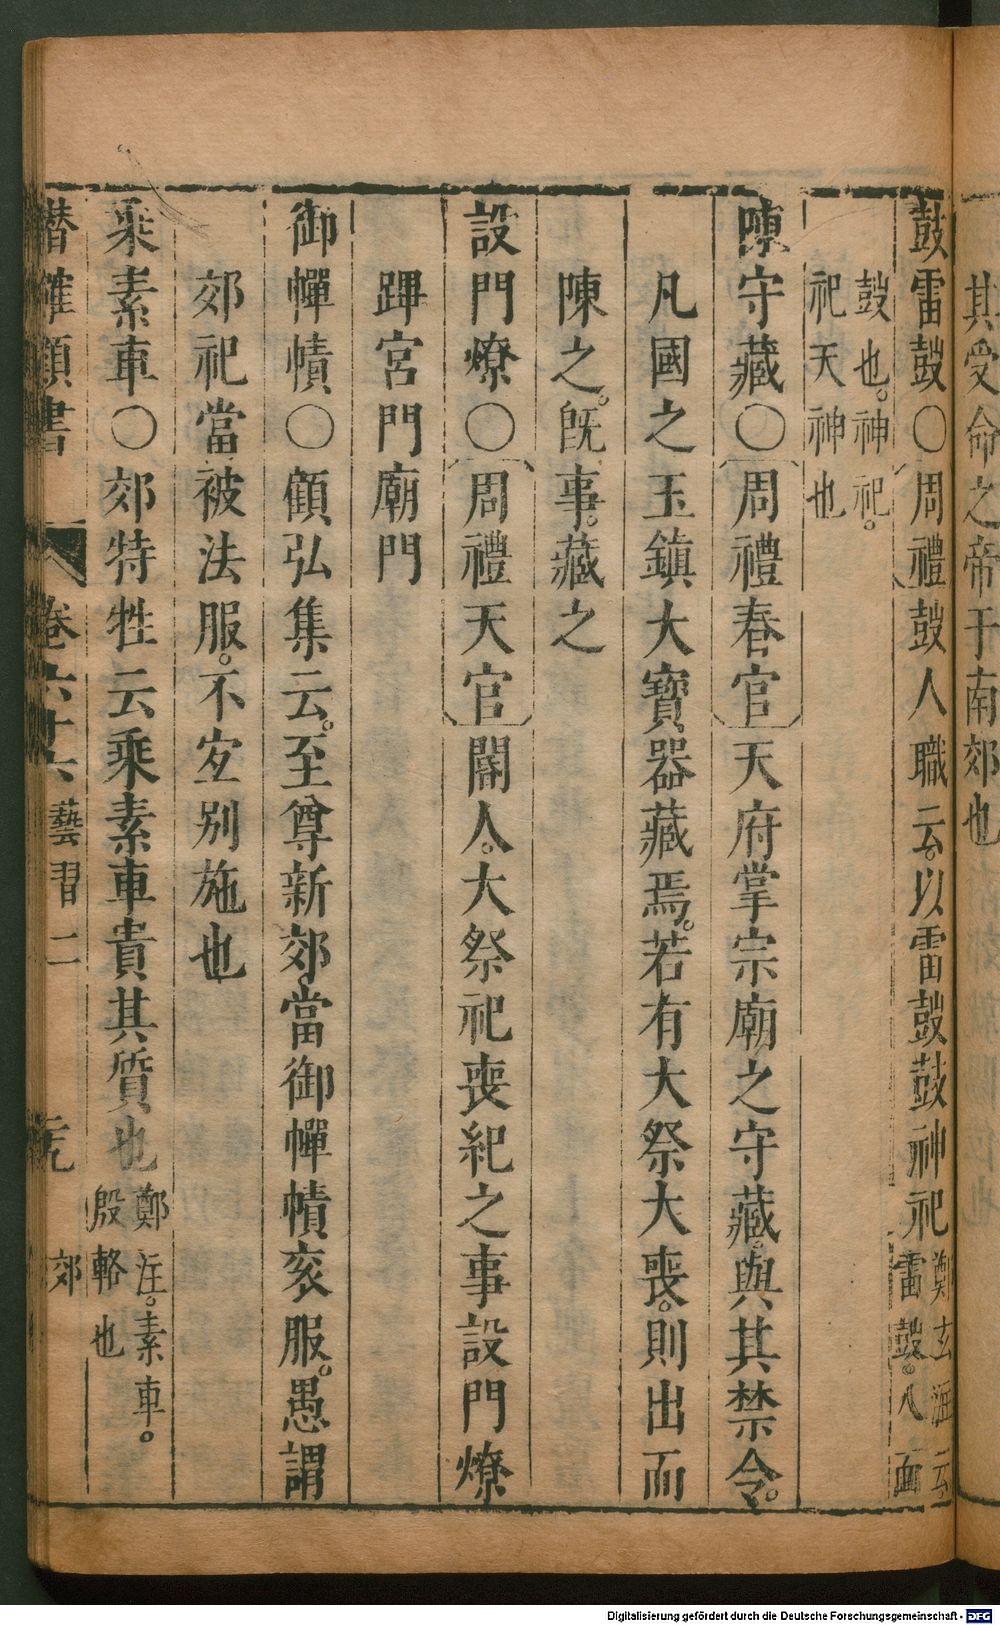 其受命之帝于南郊也
鼓雷鼓○周禮鼓人職云。以雷鼓鼓神祀
鄭玄注云。
雷鼓。八面
鼓也。神祀。
祀天神也
陳守藏○周禮春官天府掌宗廟之守藏。與其禁令。
凡國之玉鎮大寶器藏焉。若有大祭大喪。則出而
陳之。旣事。藏之
設門燎○周禮天官閽人。大祭祀喪紀之事設門燎
蹕宮門廟門
御幝幘○顧弘集云。至尊新郊。當御幝幘衮服。愚謂
郊祀當被法服。不宜别施也
乘素車○郊特牲云乘素車貴其質也
鄭注。素車。
殷輅也
潜確類書 卷六十六 藝習二 郊
Digitalisierung gefördert durch die Deutsche Forschungsgemeinschaft - DFG